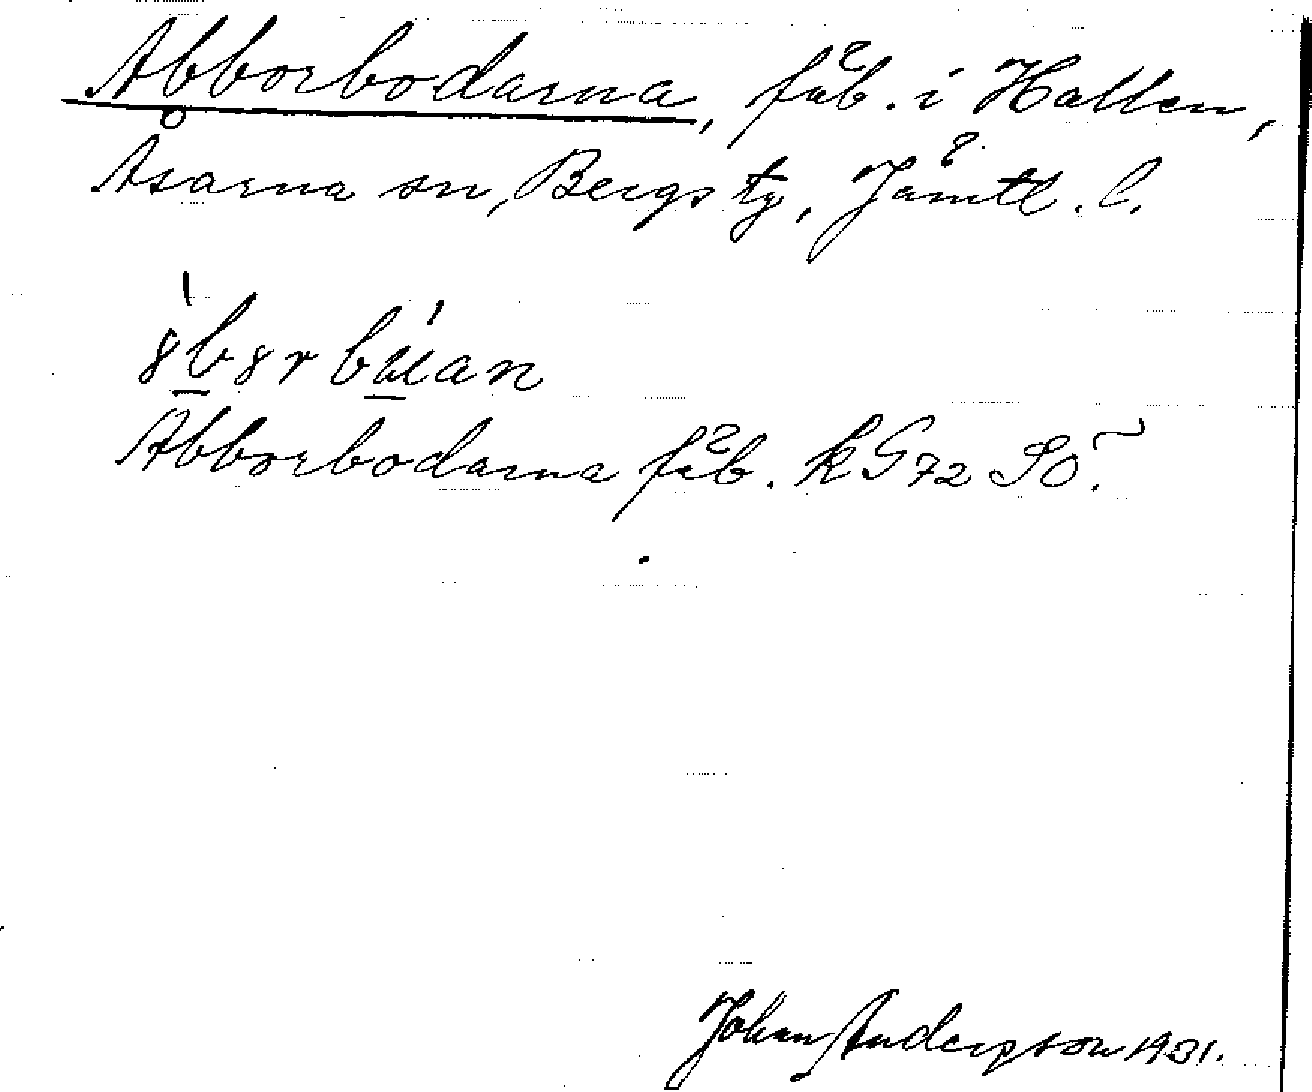 Abborbodarna, fäb. i Hallen,
Åsarna sn, Bergs tg, Jämtl. l.
Abborbodarna fäb. k G72 SO.
Johan Anderson 1931.